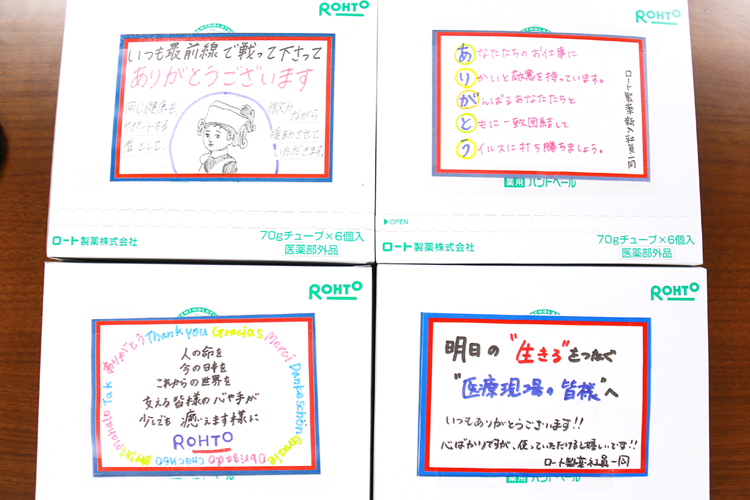 ROHTO
いつも最前線で戦って下さって
ありがとうございます
同じ健康を
サポートする
者として、
微力
ながら
援助させて
いただきます。
ロート製薬株式会社
70gチューブ×6個入
医薬部外品
ROHTO
あなたたちのお仕事に
りかいと敬意を持っています。
がんばるあなたたちと
ともに一致団結して
ウイルスに打ち勝ちましょう。
ロート製薬新入社員一同
薬用 ハンドベール
▶OPEN
ロート製薬株式会社
70gチューブ×6個入
医薬部外品
ROHTO
ありがとう Thank you Gracias Merci Danke schön Grazie Obrigado спасибо Mahalo Tak
人の命を
今の日本を
これからの世界を
支える皆様の心や手が
少しでも 癒えます様に
ROHTO
ROHTO
明日の "生きる" をつなぐ
"医療現場の皆様" へ
いつもありがとうございます!!
心ばかりですが、使っていただけると嬉しいです!!
ロート製薬社員一同
薬用 ハンドベール